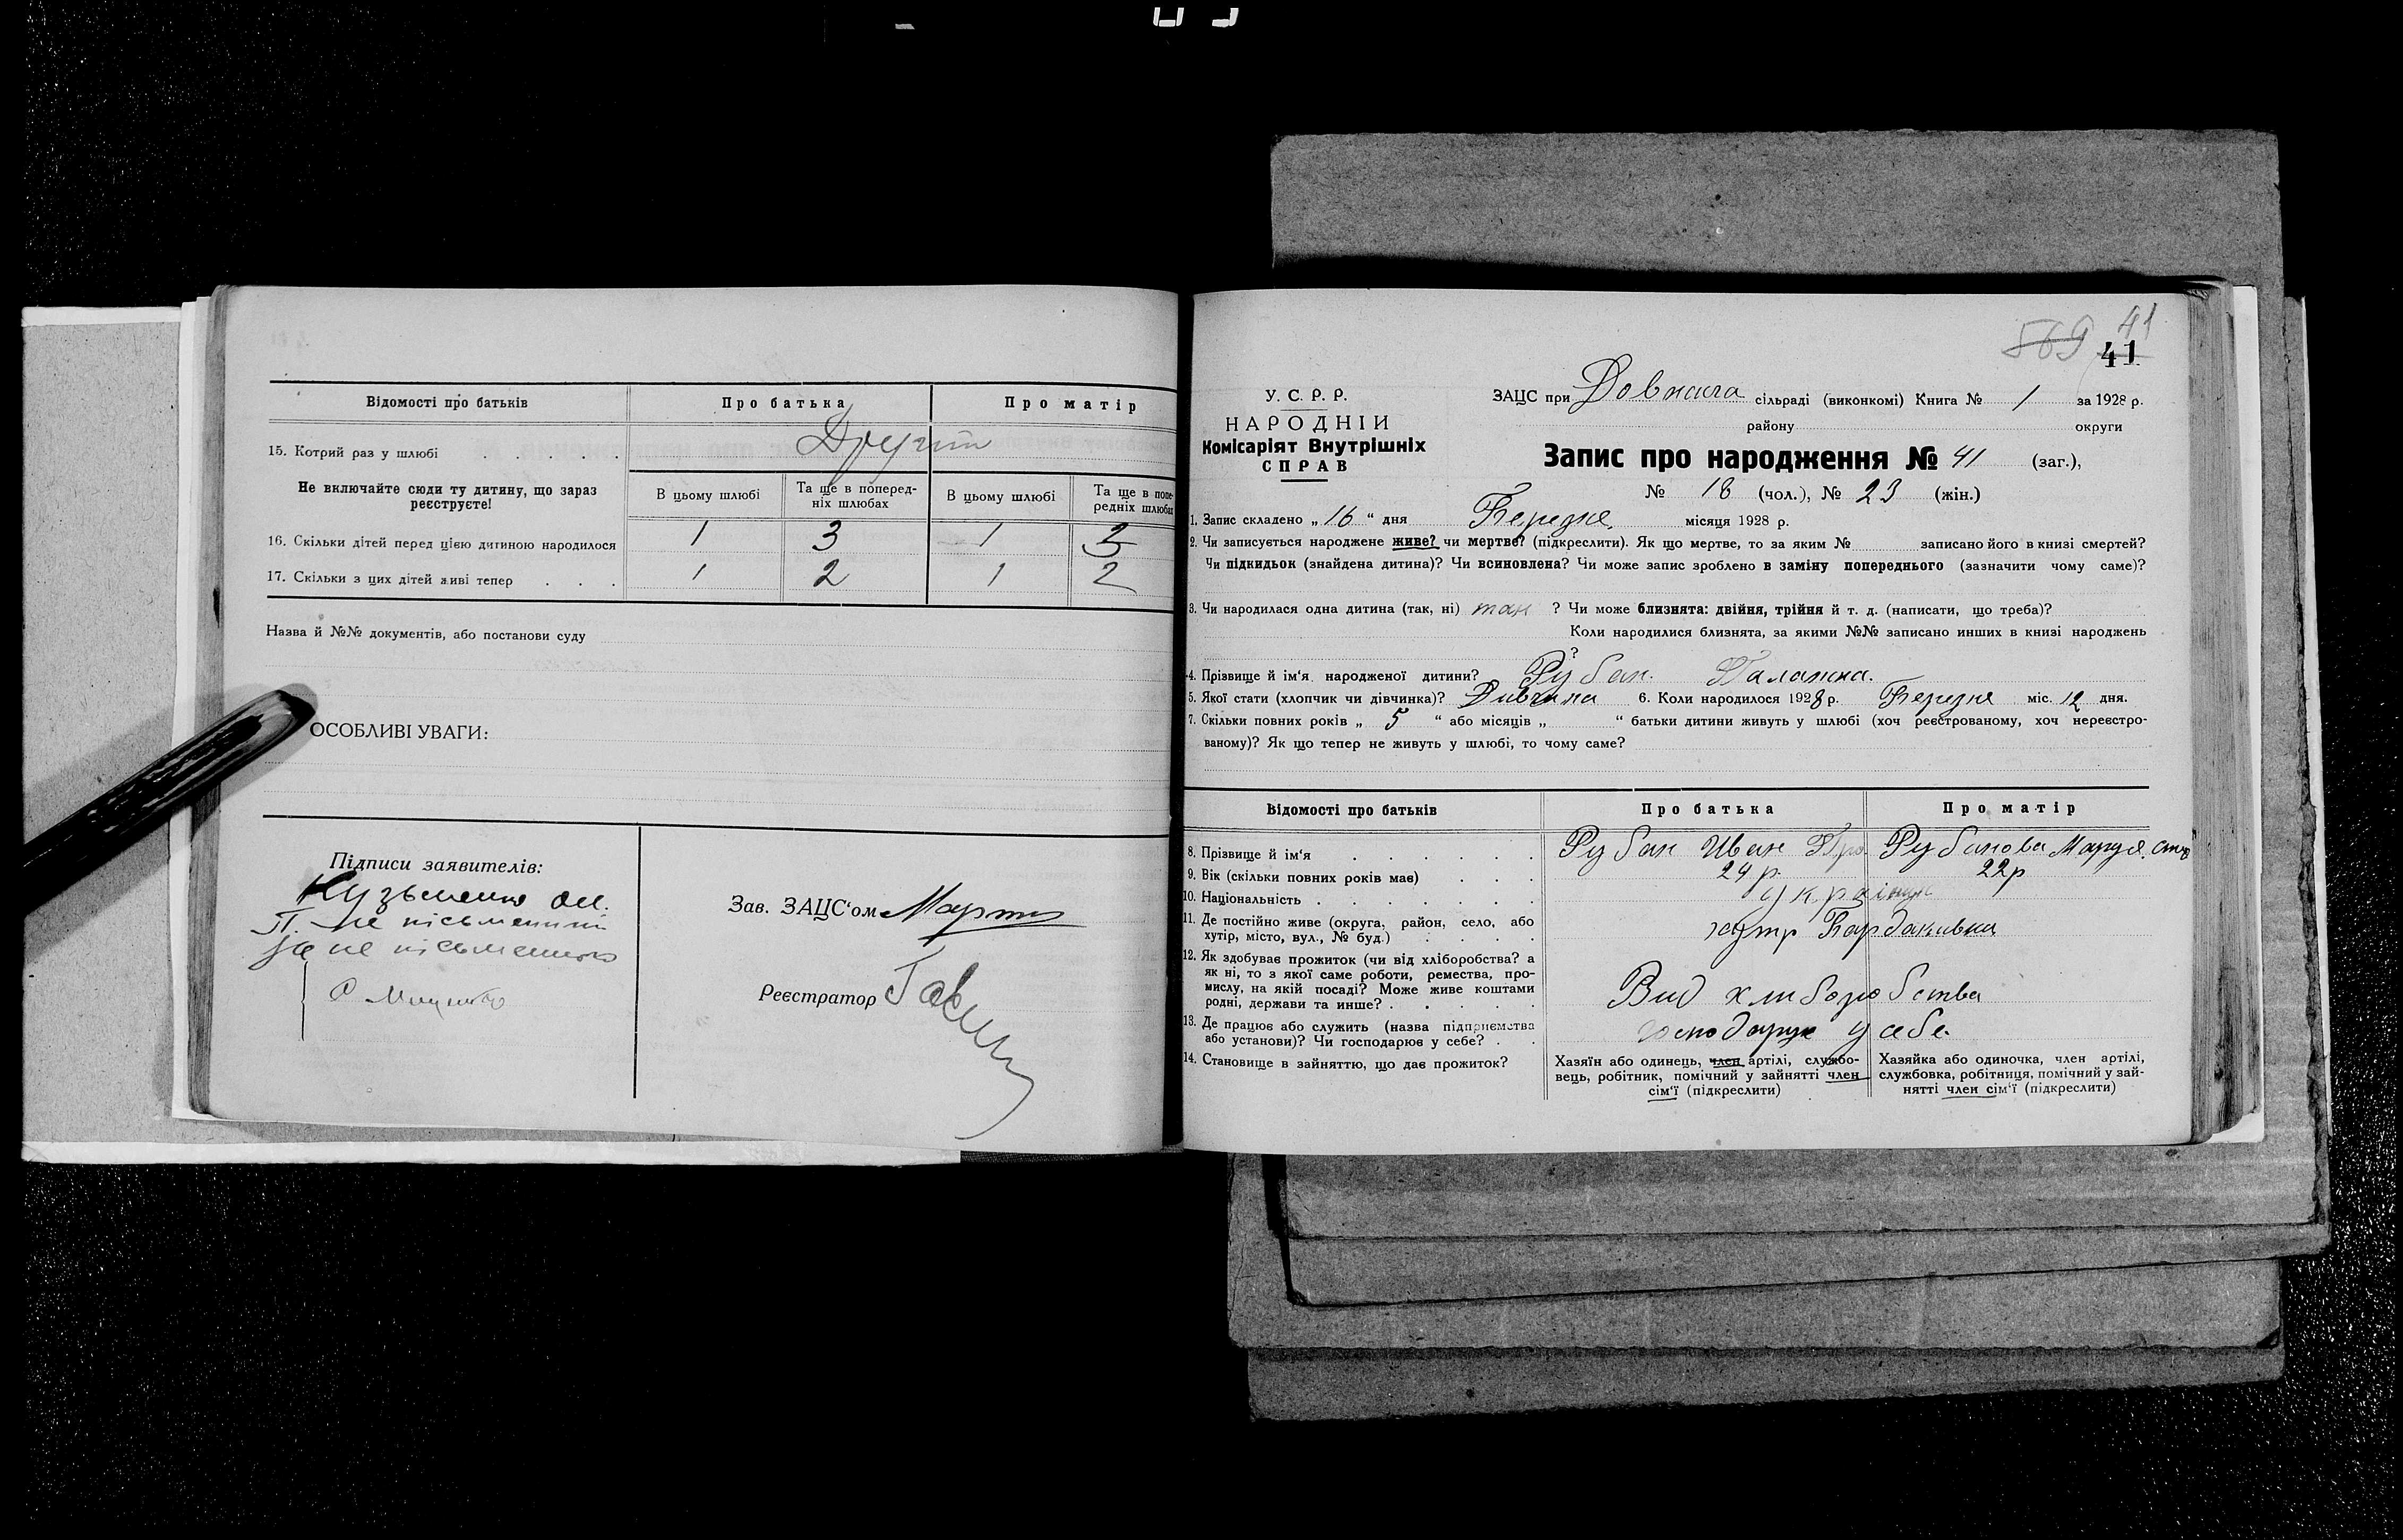 Відомості про батьків Про батька Про матір
15. Котрий раз у шлюбі . . . . Другий
Не включайте сюди ту дитину, що зараз реєструєте!
В цьому шлюбі Та ще в попередніх шлюбах В цьому шлюбі Та ще в попередніх шлюбах
16. Скільки дітей перед цією дитиною народилося 1 3 1
17. Скільки з цих дітей живі тепер . . . 1 2 1 2
Назва й №№ документів, або постанови суду
ОСОБЛИВІ УВАГИ:
Підписи заявителів:
Кузьменко
Зав. ЗАЦС'ом
не письменний
не письменного
Реєстратор
569 41
41
У. С. Р. Р.
НАРОДНІЙ
Комісаріят Внутрішніх
СПРАВ
ЗАЦС при сільраді (виконкомі) Книга № 1 за 1928 р.
району округи
Запис про народження № 41 (заг.),
№ 18 (чол.), № 23 (жін.)
1. Запис складено „16“ дня Березне місяця 1928 р.
2. Чи записується народжене живе? чи мертве? (підкреслити). Як що мертве, то за яким № записано його в книзі смертей?
Чи підкидьок (знайдена дитина)? Чи всиновлена? Чи може запис зроблено в заміну попереднього (зазначити чому саме)?
3. Чи народилася одна дитина (так, ні) так ? Чи може близнята: двійня, трійня й т. д. (написати, що треба)?
Коли народилися близнята, за якими №№ записано инших в книзі народжень
?
4. Прізвище й ім'я народженої дитини? Рубан Палажка.
5. Якої стати (хлопчик чи дівчинка)? Дивчина 6. Коли народилося 1928 р. Березне міс. 12 дня.
7. Скільки повних років „ 5 “ або місяців „ “ батьки дитини живуть у шлюбі (хоч реєстрованому, хоч нереєстро-
ваному)? Як що тепер не живуть у шлюбі, то чому саме?
Відомості про батьків Про батька Про матір
8. Прізвище й ім'я . . . . . . Рубан Иван Рубанова Маруся
9. Вік (скільки повних років має) . . . 24 р. 22 р
10. Національність . . . . . . . українці
11. Де постійно живе (округа, район, село, або
хутір, місто, вул., № буд.) . . . . хутір Бардаківка
12. Як здобуває прожиток (чи від хліборобства? а
як ні, то з якої саме роботи, ремества, про-
мислу, на якій посаді? Може живе коштами
родні, держави та инше? . . . . . Вид хлиборобства
13. Де працює або служить (назва підприємства
або установи)? Чи господарює у себе? . . господарує у себе.
14. Становище в зайняттю, що дає прожиток?
Хазяїн або одинець, член артілі, службо-
вець, робітник, помічний у зайнятті член
сім'ї (підкреслити)
Хазяйка або одиночка, член артілі,
службовка, робітниця, помічний у зай-
нятті член сім'ї (підкреслити)